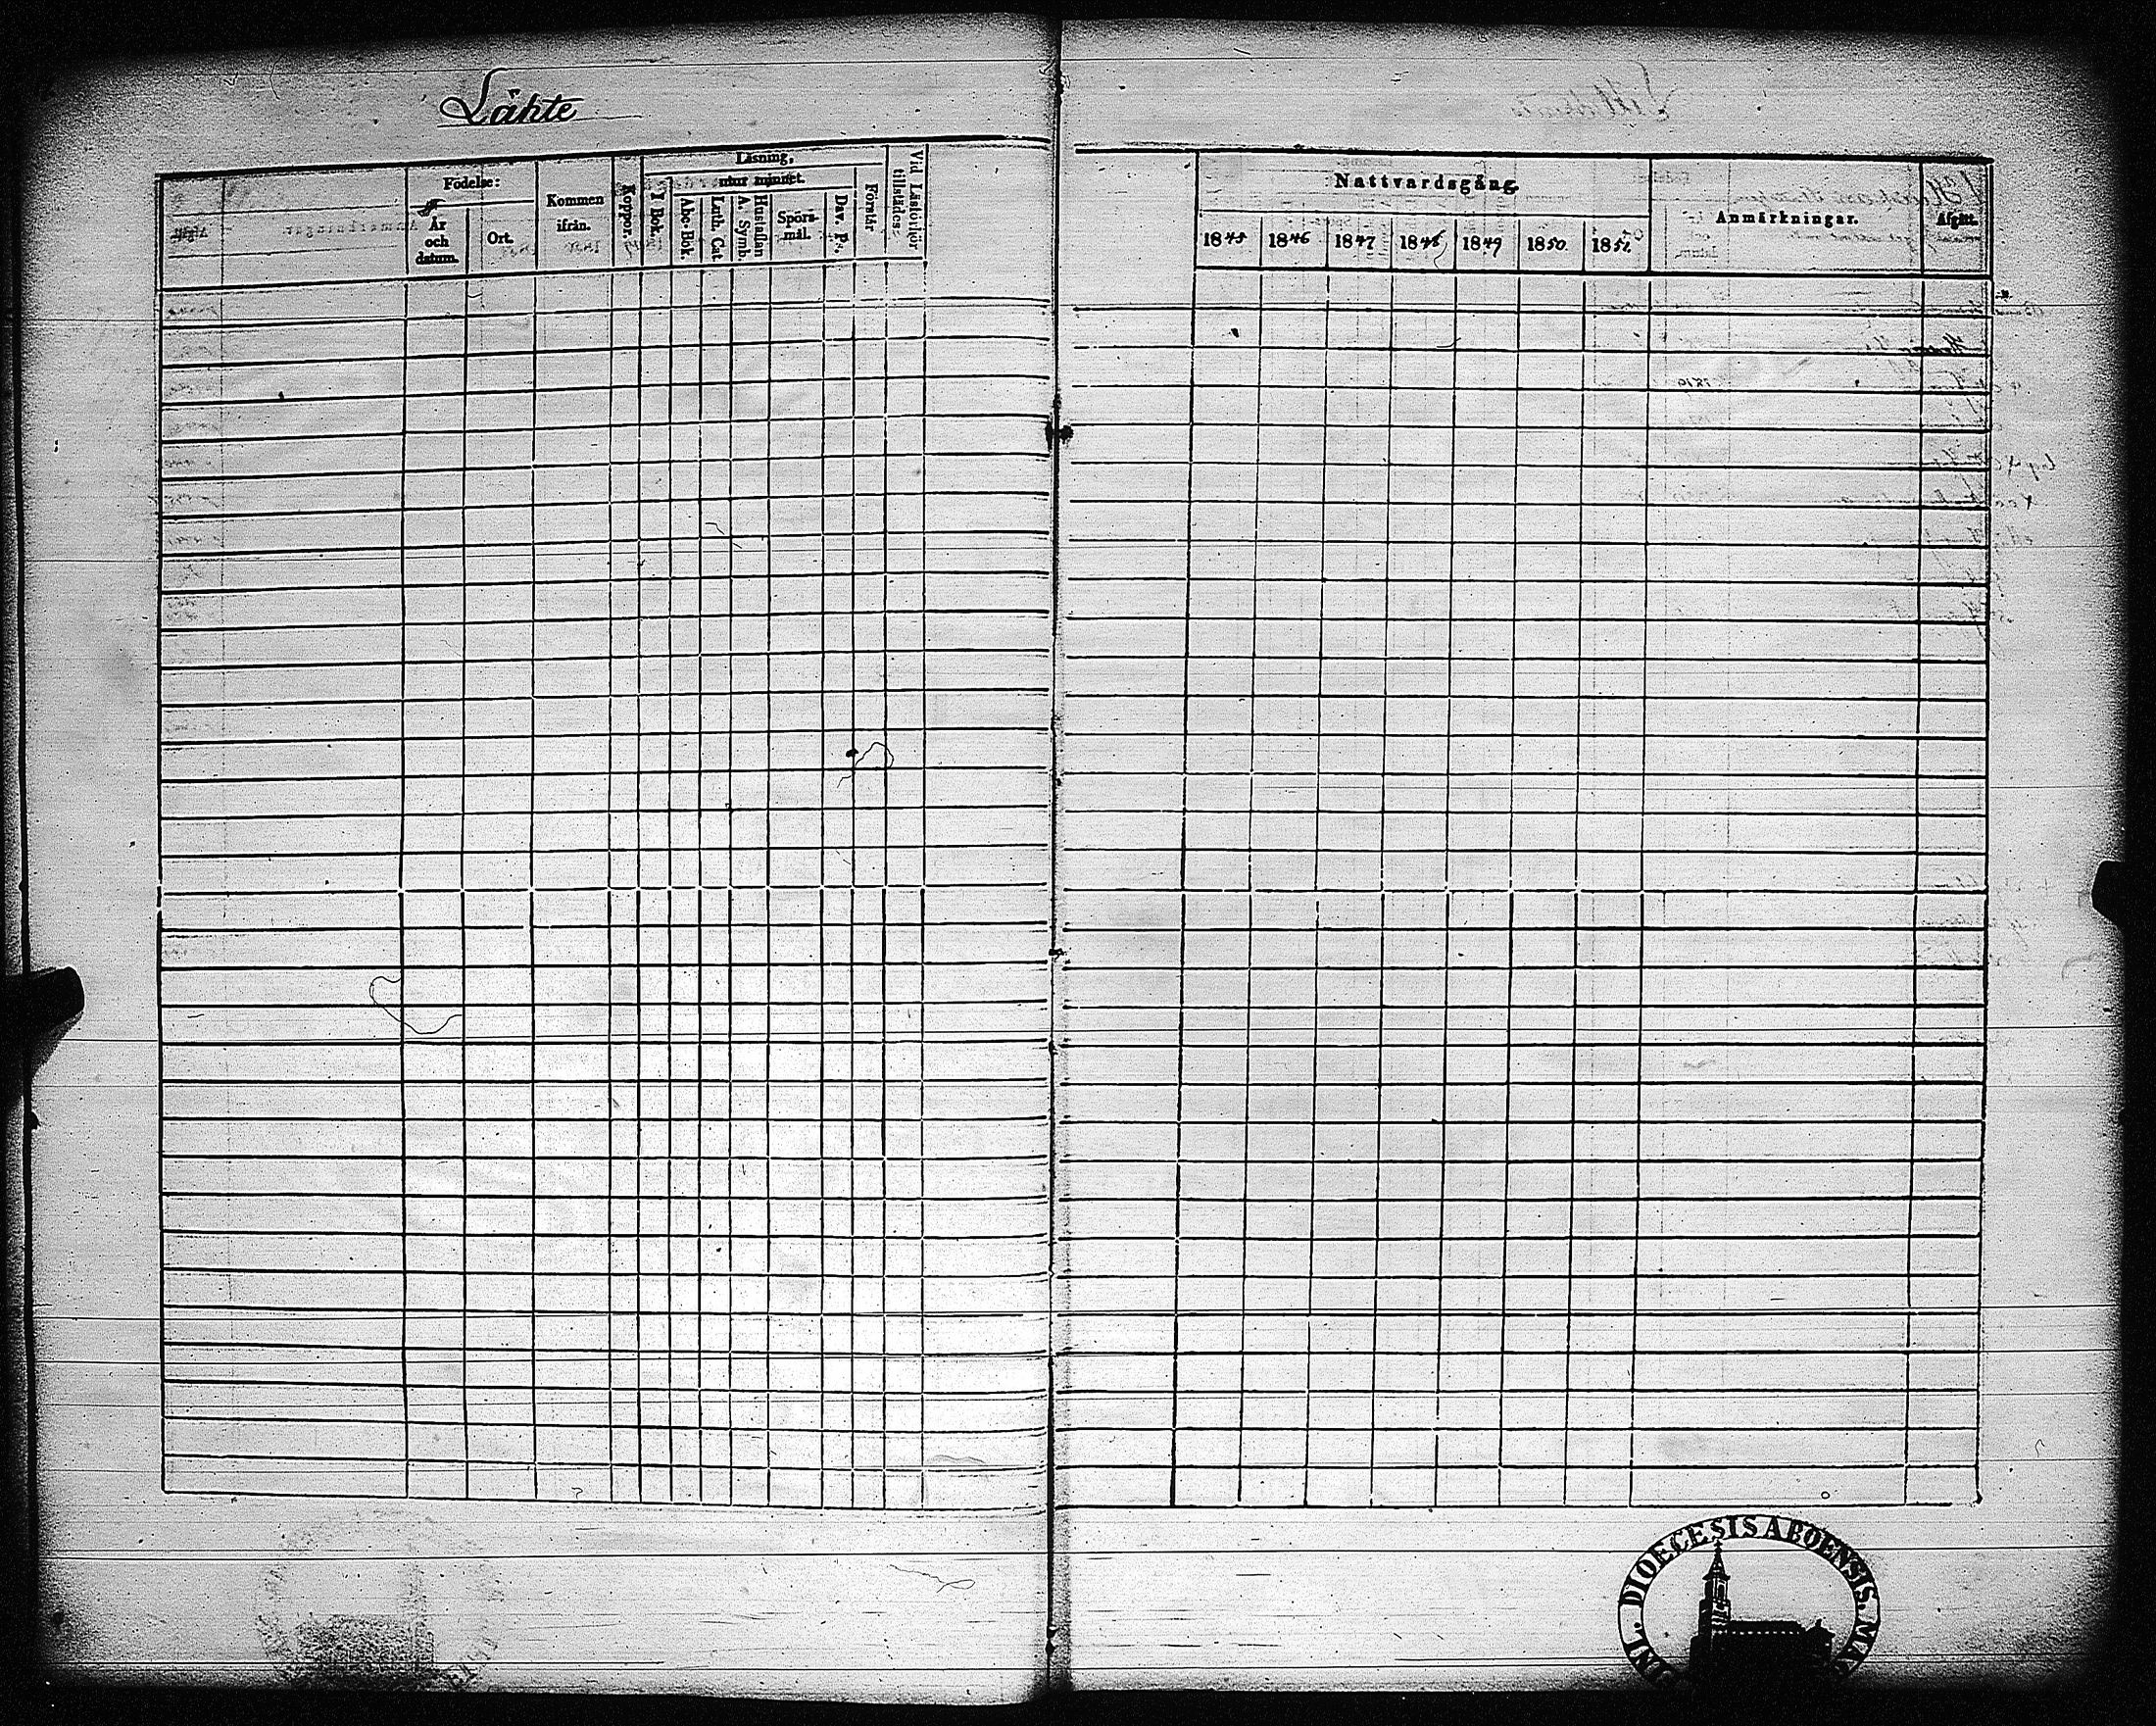 Lähte
Födelse:
År
och
datum.
Ort.
Kommen
ifrån.
Koppor.
Läsning,
utur minnet.
I Bok.
Abc-Bok.
Luth. Cat
A. Symb.
Hustaflan
Spörs-
mål.
Dav. P:
Förstår
Vid Läsförhör
tillstädes:
Nattvardsgång.
1845
1846
1847
1848
1849
1850.
1851.
Anmärkningar.
Afgått.
DIOECESIS ABOENSIS. MA